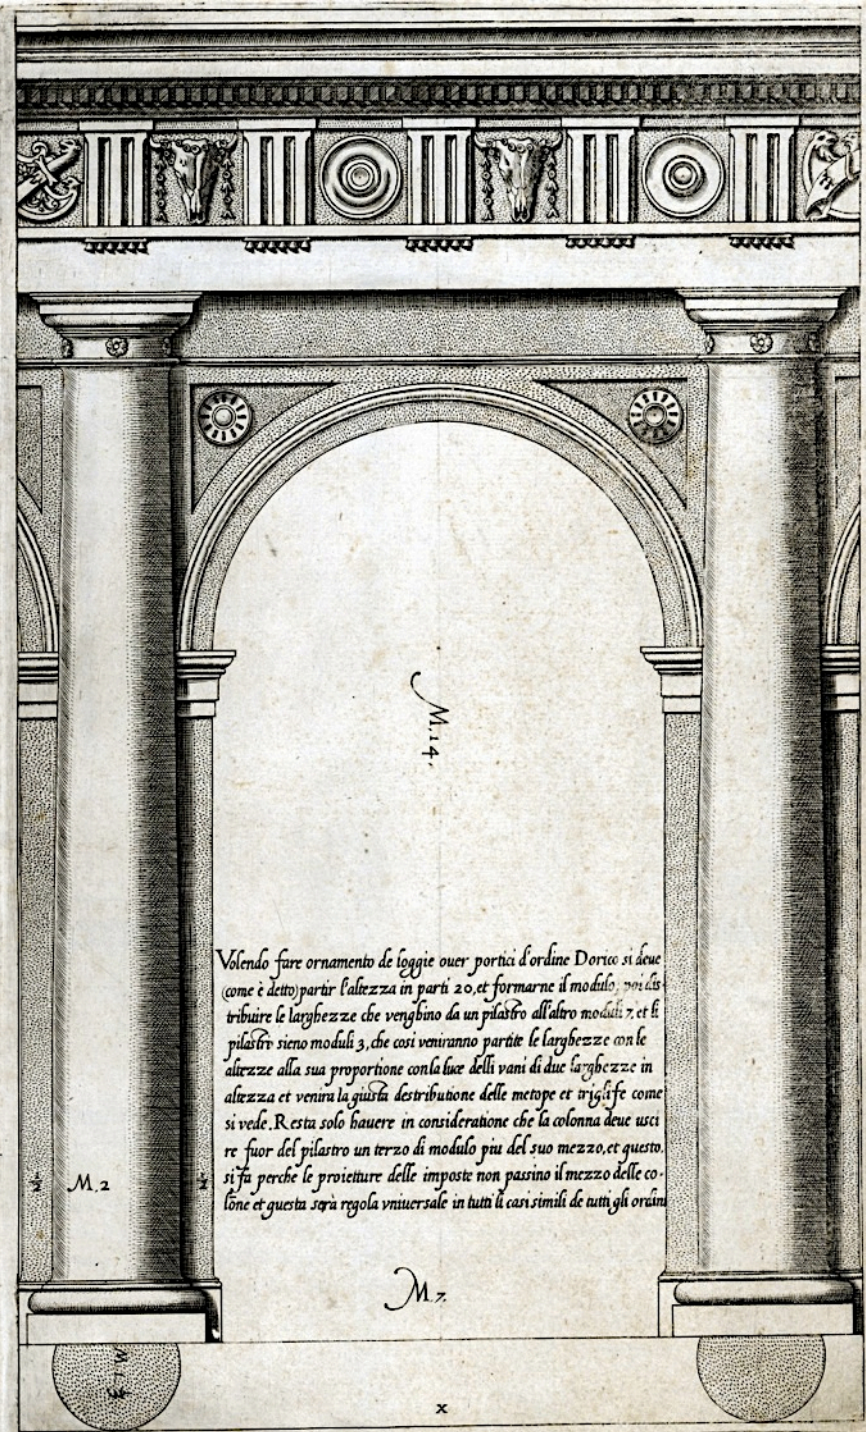 M.14.
Volendo fare ornamento de loggie ouer portici d'ordine Dorico si deue
(come è detto) partir l'altezza in parti 20, et formarne il modulo, poi dis-
tribuire le larghezze che venghino da un pilastro all'altro moduli 7, et li
pilastri sieno moduli 3, che cosi veniranno partite le larghezze con le
altezze alla sua proportione con la luce delli vani di due larghezze in
altezza et venira la giusta destributione delle metope et triglife come
si vede. Resta solo hauere in consideratione che la colonna deue usci
re fuor del pilastro un terzo di modulo piu del suo mezzo, et questo.
si fa perche le proietture delle imposte non passino il mezzo delle co-
lõne et questa serà regola vniuersale in tutti li casi simili de tutti gli ordini
½ M.2 ½
M.7.
M 1⅓
X